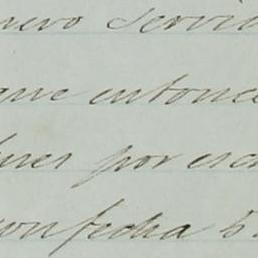 nuevo servic
que entonce
por esc
con fecha 5